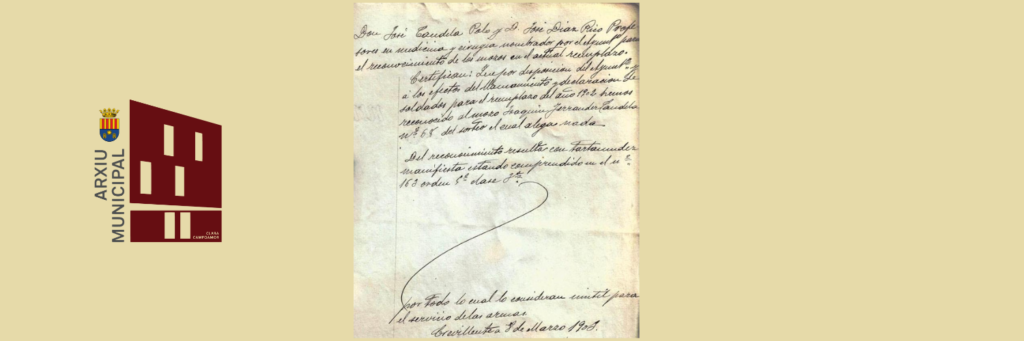 ARXIU
MUNICIPAL
CLARA
CAMPOAMOR
Don José Candela Polo y D. José Diaz Rico Profe
sores en medicina y cirugia nombrados por el Ayunt.º para
el reconocimiento de los mozos en el actual reemplazo.
Certifican: Que por disposicion del Ayunt.º y
á los efectos del llamamiento y declaracion de
soldados para el reemplazo del año 1902 hemos
reconocido al mozo Joaquin Ferrandez Candela
nº 68 del sorteo el cual alega: nada
Del reconocimiento resulta con Tartamudez
manifiesta estando comprendido en el nº
163 orden 5º clase
por todo lo cual lo consideran inutil para
el servicio de las armas
Crevillente de Marzo